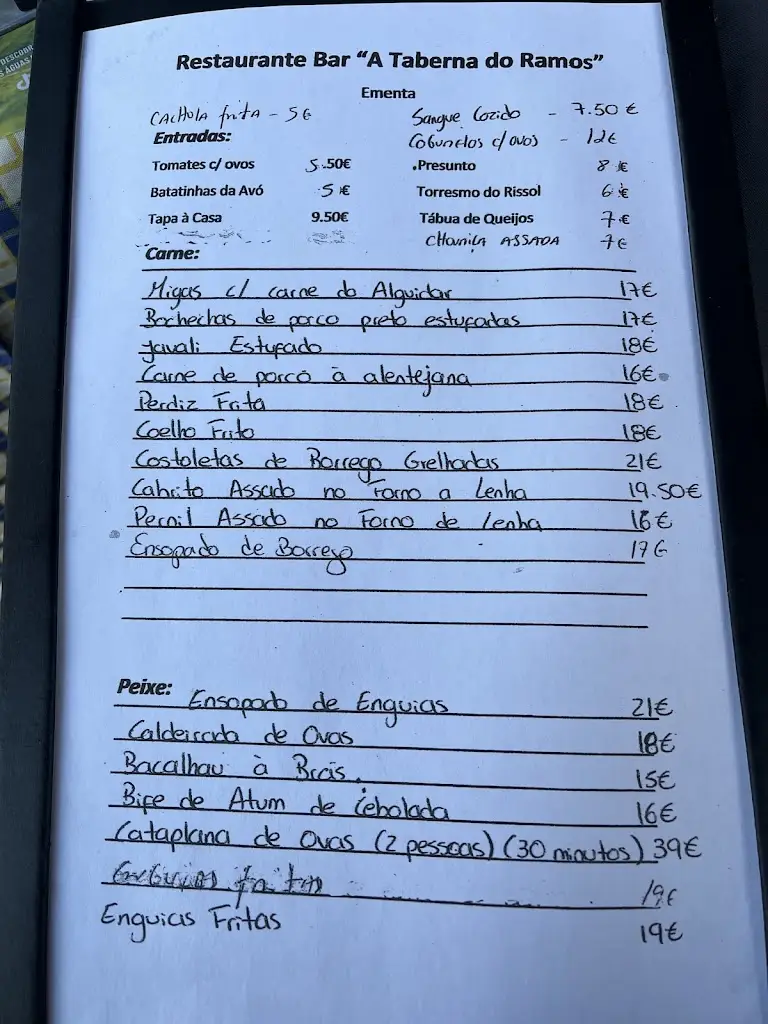 DESCOBR
S ÁGUAS
Restaurante Bar “A Taberna do Ramos”
Ementa
CACHOLA frita - 5€
Sangue Cozido - 7.50 €
Entradas:
c/ ovos - 12€
Tomates c/ ovos 5.50€
.Presunto 8 €
Batatinhas da Avó 5 €
Torresmo do Rissol 6 €
Tapa à Casa 9.50€
Tábua de Queijos 7 €
ASSADA 7€
Carne:
Migas c/ carne do Alguidar 17€
Bochechas de porco preto estufadas 17€
Javali Estufado 18€
Carne de porco à alentejana 16€
Perdiz Frita 18€
Coelho Frito 18€
Costoletas de Borrego Grelhadas 21€
Cabrito Assado no Forno a Lenha 19.50€
Pernil Assado no Forno de lenha 16€
Ensopado de Borrego 17€
Peixe:
Ensopado de Enguias 21€
Caldeirada de Ovas 18€
Bacalhau à Brás. 15€
Bife de Atum de Cebolada 16€
Cataplana de Ovas (2 pessoas) (30 minutos) 39€
Enguias fritas 19€
Enguias Fritas 19€